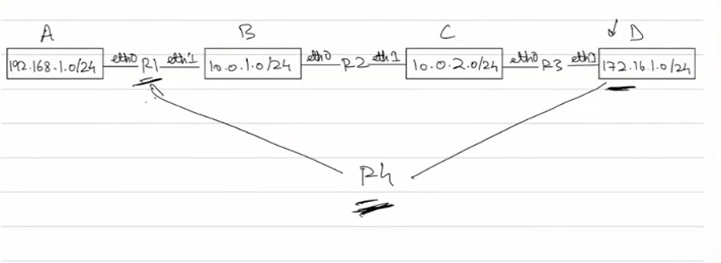 A B C D
192.168.1.0/24 eth0 R1 eth1 10.0.1.0/24 eth0 R2 eth1 10.0.2.0/24 eth0 R3 eth1 172.16.1.0/24
R4